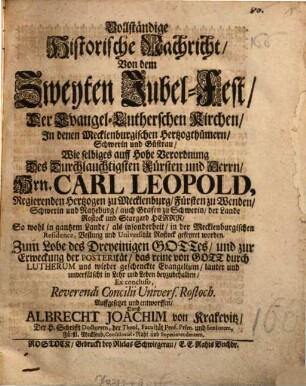 Vollständige
Historische Nachricht/
Von dem
Zweyten Jubel-Fest/
Der Evangel-Lutherschen Kirchen/
In denen Mecklenburgischen Hertzogthümern/
Schwerin und Güstrau/
Wie selbiges auff Hohe Verordnung
Des Durchlauchtigsten Fürsten und Herrn/
Hrn. CARL LEOPOLD,
Regierenden Hertzogen zu Mecklenburg/ Fürsten zu Wenden/
Schwerin und Ratzeburg/ auch Grafen zu Schwerin/ der Lande
Rostock und Stargard HERRN/
So wohl in gantzem Lande/ als insonderheit/ in der Mecklenburgischen
Residence, Vestung und Universität Rostock gefeyret worden.
Zum Lobe des Dreyeinigen GOTTes/ und zur
Erweckung der POSTERITÄT/ das reine von GOTT durch
LUTHERUM uns wieder geschenckte Evangelium/ lauter und
unverfälscht in Lehr und Leben beyzubehalten
Ex concluso,
Reverendi Concilii Univers. Rostoch.
Auffgesetzet und entworffen/
Durch
ALBRECHT JOACHIM von Krakevitz/
Der H. Schrifft Doctorem, der Theol. Facultät Prof. Prim. und Seniorem,
Fürstl. Mecklenb. Consistorial-Raht und Superintendenten.
ROSTOCK/ Gedruckt bey Niclas Schwiegerau/ E. E. Rahts Buchdr.